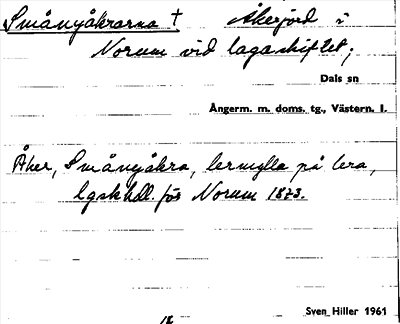 Smånyåkrarna † Åkerjord i
Norum vid lagaskiftet;
Dals sn
Ångerm. m. doms. tg., Västern. l.
Åker, Smånyåkra, lermylla på lera,
lgskhdl. för Norum 1873.
Sven Hiller 1961